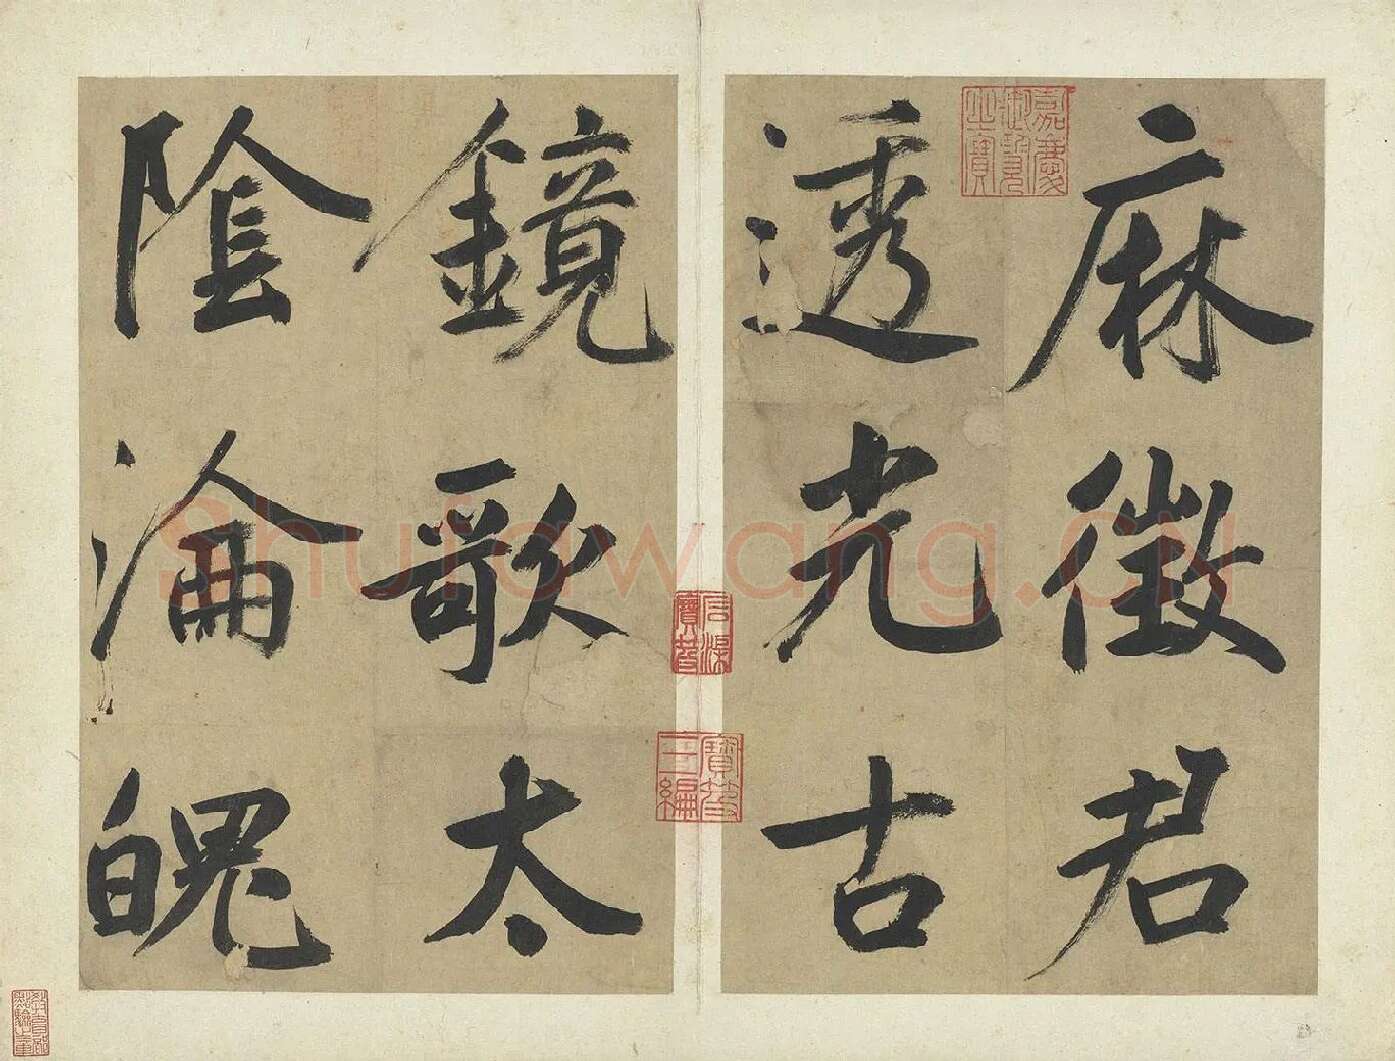 麻徵君
透光古
鏡歌太
陰淪魄
嘉慶御覽之寶
石渠寶笈
寶笈三編
教育部點驗之章
Shufawang.CN